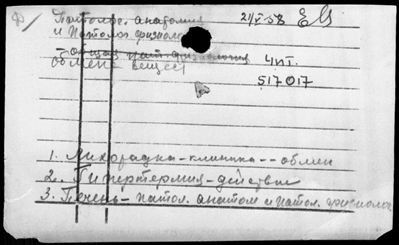 Патолог. анатомия 21/V-58
и Патолог физиол
общая пат. физиология
обмен веществ
517017
1. Лихорадка - клиника -- обмен
2. Гипертермия - действие
3. Печень - патол. анатом и патол. физиолог